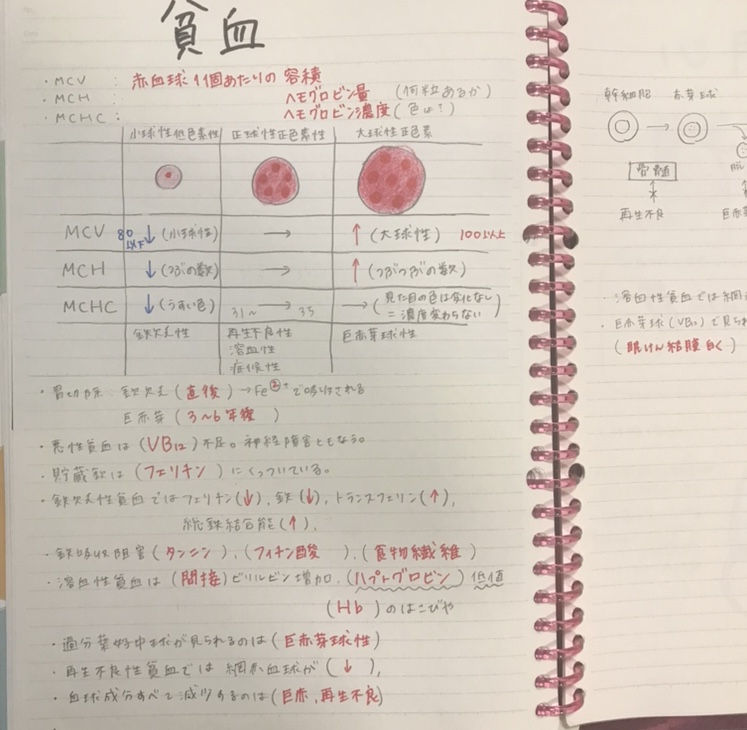 貧血
・MCV : 赤血球1個あたりの容積
・MCH : ヘモグロビン量 (何粒あるか)
・MCHC : ヘモグロビン濃度 (色は?)
小球性低色素性 正球性正色素性 大球性正色素
MCV 80以下 ↓ (小球性) → ↑ (大球性) 100以上
MCH ↓ (つぶの数) → ↑ (つぶつぶの数)
MCHC ↓ (うすい色) 31〜 → 35 → (見た目の色は変化なし
= 濃度変わらない)
鉄欠乏性 再生不良性 巨赤芽球性
溶血性
症候性
・胃切除 鉄欠乏 (直後) → Fe②+で吸収される
巨赤芽 (3〜6年後)
・悪性貧血は (VB12) 不足。神経障害ともなう。
・貯蔵鉄は (フェリチン) にくっついている。
・鉄欠乏性貧血ではフェリチン(↓), 鉄(↓), トランスフェリン(↑),
総鉄結合能(↑),
・鉄吸収阻害 (タンニン), (フィチン酸), (食物繊維)
・溶血性貧血は (間接) ビリルビン増加, (ハプトグロビン) 低値
(Hb) のはこびや
・過分葉好中球が見られるのは (巨赤芽球性)
・再生不良性貧血では 網赤血球が (↓),
・血球成分すべて減少するのは (巨赤, 再生不良)
幹細胞 赤芽球
→
骨髄
再生不良
・溶血性貧血では網
・巨赤芽球 (VB12) で見られ
(眼けん結膜白く)